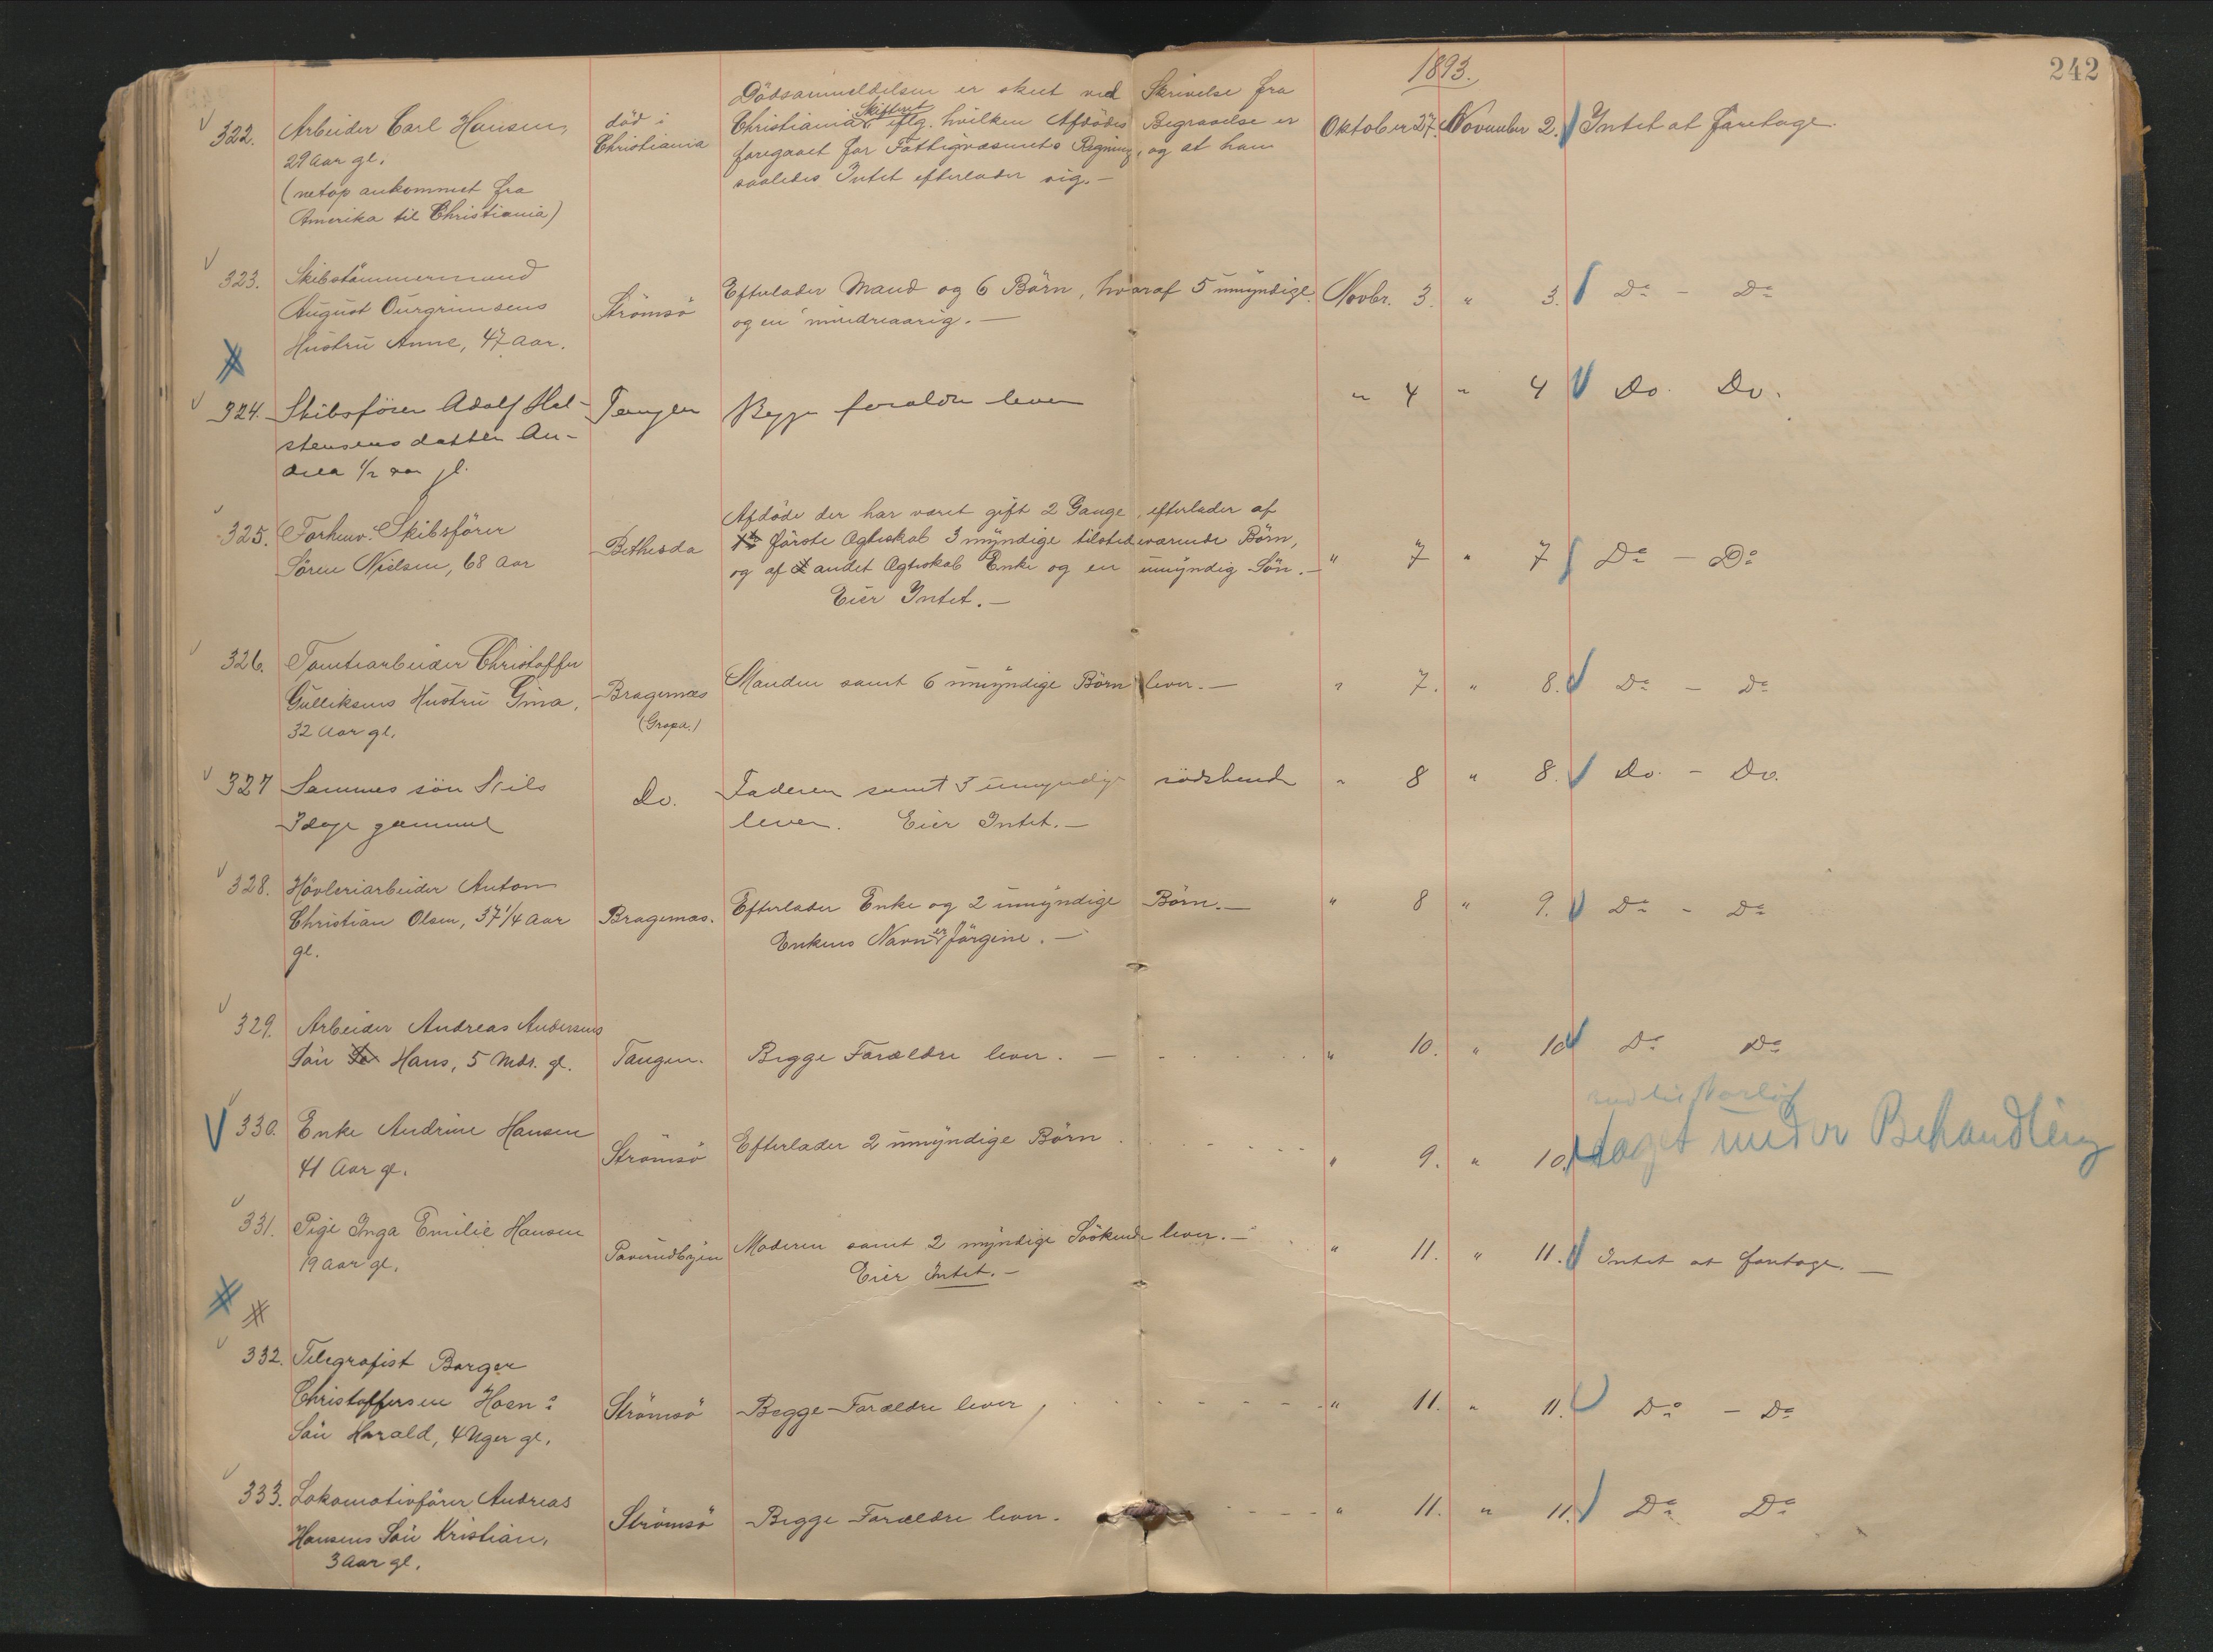 242
1893.
322. Arbeider Carl Hansen,
29 Aar gl.
(netop ankommet fra
Amerika til Christiania)
död i
Christiania
Dödsanmeldelsen er skeet ved Skrivelse fra
Christiania Skifteret eftg. hvilken Afdödes Begravelse er
foregaaet for Fattigvæsenets Regning, og at han
saaledes Intet efterlader sig. —
Oktober 27. November 2. Intet at foretage.
323. Skibstömmermand
August Ourgrimsens
Hustru Anne, 47 Aar.
Strömsö
Efterlader Mand og 6 Börn, hvoraf 5 umyndige
og en mindreaarig. —
Novbr. 3. " 3. Do — Do
324. Skibsförer Adolf Hal-
stensens datter An-
drea 1/2 aar gl.
Tangen
Begge foraldre lever
" 4 " 4 Do. Do.
325. Forhenv. Skibsförer
Sören Nielsen, 68 Aar
Bethesda
Afdöde der har været gift 2 Gange, efterlader af
förste Ægteskab 3 myndige tilstedeværende Börn,
og af andet Ægteskab Enke og en umyndig Sön. —
Eier Intet. —
" 7 " 7 Do — Do
326. Tomtearbeider Christoffer
Gulliksens Hustru Gina,
32 Aar gl.
Bragernæs
(Gropa.)
Manden samt 6 umyndige Börn lever. —
" 7. " 8. Do — Do
327 Sammes sön Nils
3 dage gammel
Do.
Faderen samt 5 umyndige södskende
lever. Eier Intet. —
" 8 " 8. Do. — Do.
328. Hövleriarbeider Anton
Christian Olsen, 37 1/4 Aar
gl.
Bragernæs.
Efterlader Enke og 2 umyndige Börn. —
Enkens Navn er Jörgine. —
" 8 " 9. Do - Do
329. Arbeider Andreas Andersens
Sön Hans, 5 Mdr. gl.
Tangen.
Begge Forældre lever. —
" 10. " 10 Do Do
330. Enke Andrine Hansen
41 Aar gl.
Strömsö
Efterlader 2 umyndige Börn
" 9. " 10. taget under Behandling
331. Pige Inga Emilie Hansen
19 Aar gl.
Paverudbyen
Moderen samt 2 myndige Söskende lever. —
Eier Intet. —
" 11. " 11. Intet at foretage. —
332. Telegrafist Borger
Christoffersen Hoen's
Sön Harald, 4 Uger gl.
Strömsö
Begge Forældre lever,
" 11. " 11. Do — Do
333. Lokomotivförer Andreas
Hansens Sön Kristian,
3 Aar gl.
Strömsö
Begge Forældre lever.
" 11. " 11. Do Do